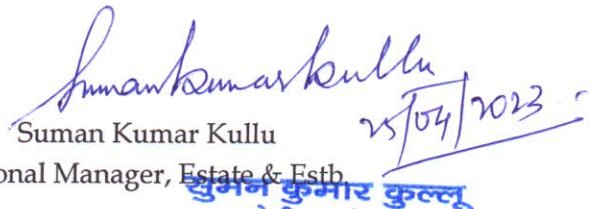 Suman Kumar Kullu
25/04/2023
Suman Kumar Kullu
onal Manager, Estate & Estb
सुमन कुमार कुल्लू